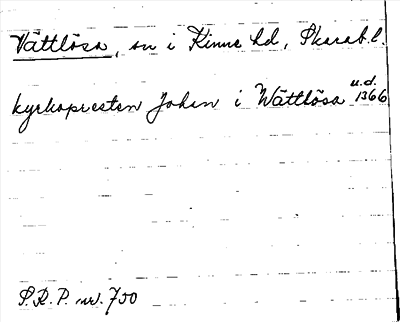 Vättlösa, sn i Kinne hd, Skarab.l.
kyrkopresten Johan i Wättlösa u.d. 1366
S.R.P. nr. 700